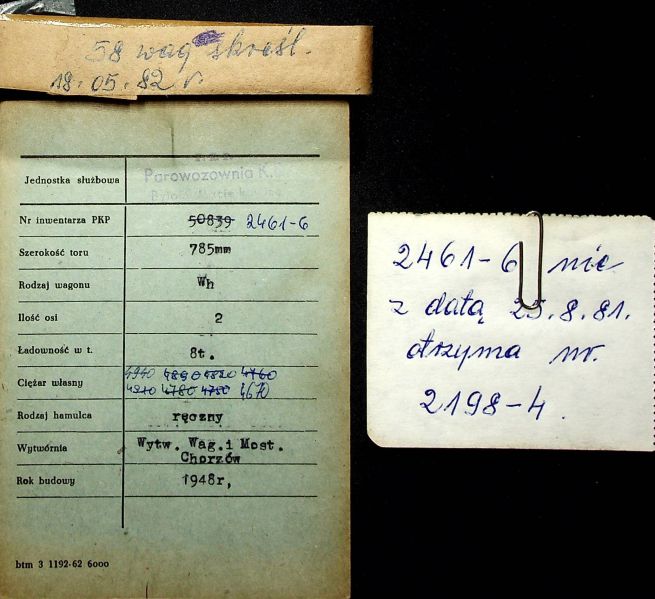 58 wag skreśl.
18.05.82 r
Jednostka służbowa
Parowozownia K.
Nr inwentarza PKP 50839 2461-6
Szerokość toru 785mm
Rodzaj wagonu Wh
Ilość osi 2
Ładowność w t. 8t.
Ciężar własny 4940 4890 4820 4760
4910 4780 4750 4670
Rodzaj hamulca ręczny
Wytwórnia Wytw. Wag. i Most.
Chorzów
Rok budowy 1948r,
btm 3 1192-62 6000
2461-6 nie
z datą 25.8.81.
otrzyma nr.
2198-4.